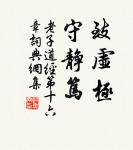 致虛極
守靜篤
老子道經第十六
章詞典網集